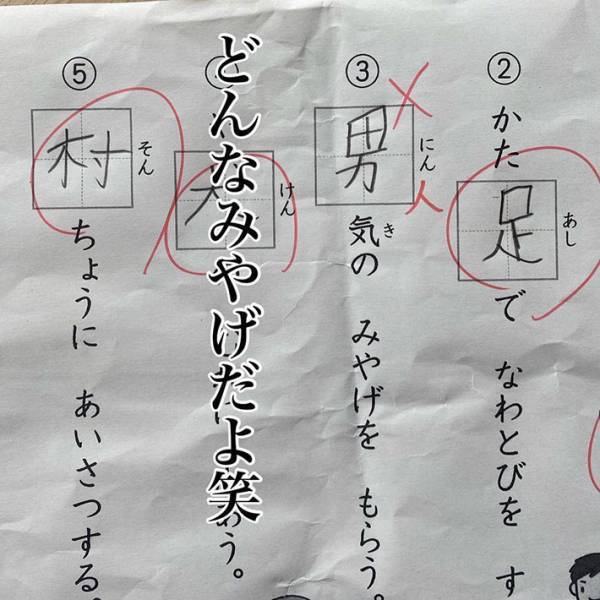 ② かた足で なわとびを す
あし
③ 男気の みやげを もらう。
にん
き
人
犬
けん
う。
⑤ 村ちょうに あいさつする。
そん
どんなみやげだよ笑